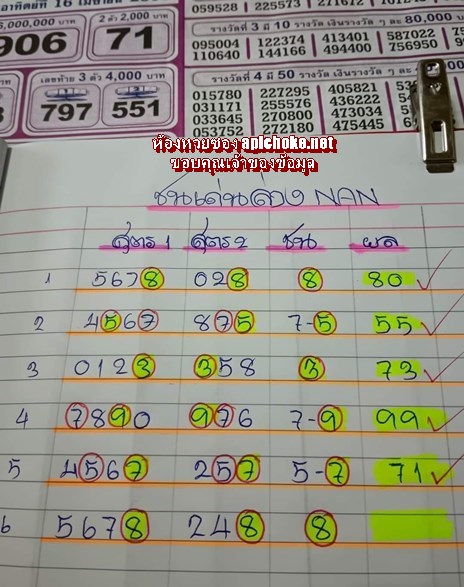 าทิตย์ที่ 16 เมษายน
6,000,000 บาท
2 ตัว 2,000 บาท
906 71
เลขท้าย 3 ตัว 4,000 บาท
797 551
059528 225573 271672
รางวัลที่ 3 มี 10 รางวัล เงินรางวัล ๆ ละ 80,000 บาท
095004 122374 413401 587022
110640 144166 494400 756950
รางวัลที่ 4 มี 50 รางวัล เงินรางวัล ๆ ละ
015780 227295 405821
031171 255576 436222
033645 270800 473034
053752 272180 475445
ห้องหวยซอง apichoke.net
ขอบคุณเจ้าของข้อมูล
ชนเด่นล่าง NAN
สูตร 1 สูตร 2 ชน ผล
1 5678 028 8 80
2 4567 875 7-5 55
3 0123 358 3 73
4 7890 976 7-9 99
5 4567 257 5-7 71
6 5678 248 8